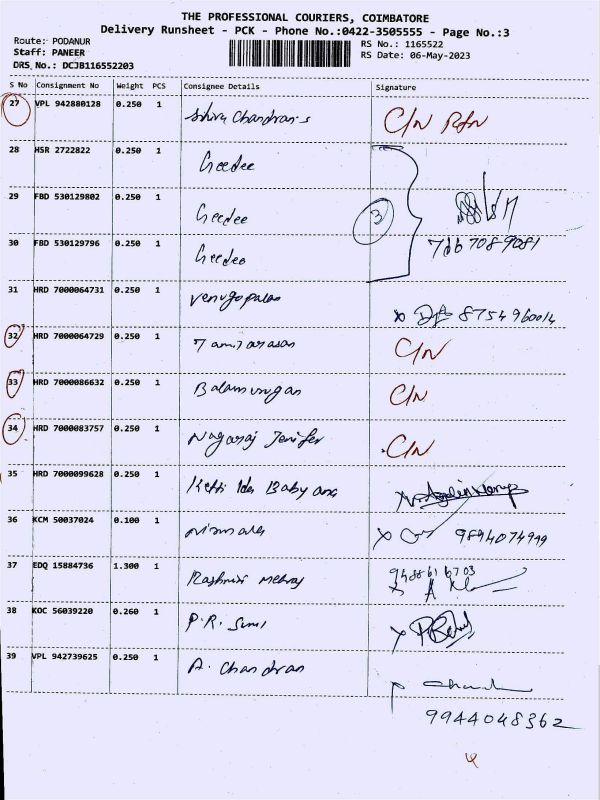 THE PROFESSIONAL COURIERS, COIMBATORE
Delivery Runsheet - PCK - Phone No.:0422-3505555 - Page No.:3
Route: PODANUR
RS No.: 1165522
Staff: PANEER
RS Date: 06-May-2023
DRS No.: DCJB116552203
S No Consignment No Weight PCS Consignee Details Signature
27 VPL 942880128 0.250 1 Shiva Chandran.s C/N
28 HSR 2722822 0.250 1 Geedee
29 FBD 530129802 0.250 1 Geedee 3
30 FBD 530129796 0.250 1 Geedee
31 HRD 7000064731 0.250 1 Venugopalan 8754960014
32 HRD 7000064729 0.250 1 Tamilarasan C/N
33 HRD 7000086632 0.250 1 Balamurugan C/N
34 HRD 7000083757 0.250 1 Nagaraj Jenifer C/N
35 HRD 7000099628 0.250 1 Baby
36 KCM 50037024 0.100 1 Nirmala 9894074999
37 EDQ 15884736 1.300 1 Rashmi
38 KOC 56039220 0.260 1 P.R.
39 VPL 942739625 0.250 1 A. Chandran
9944048362